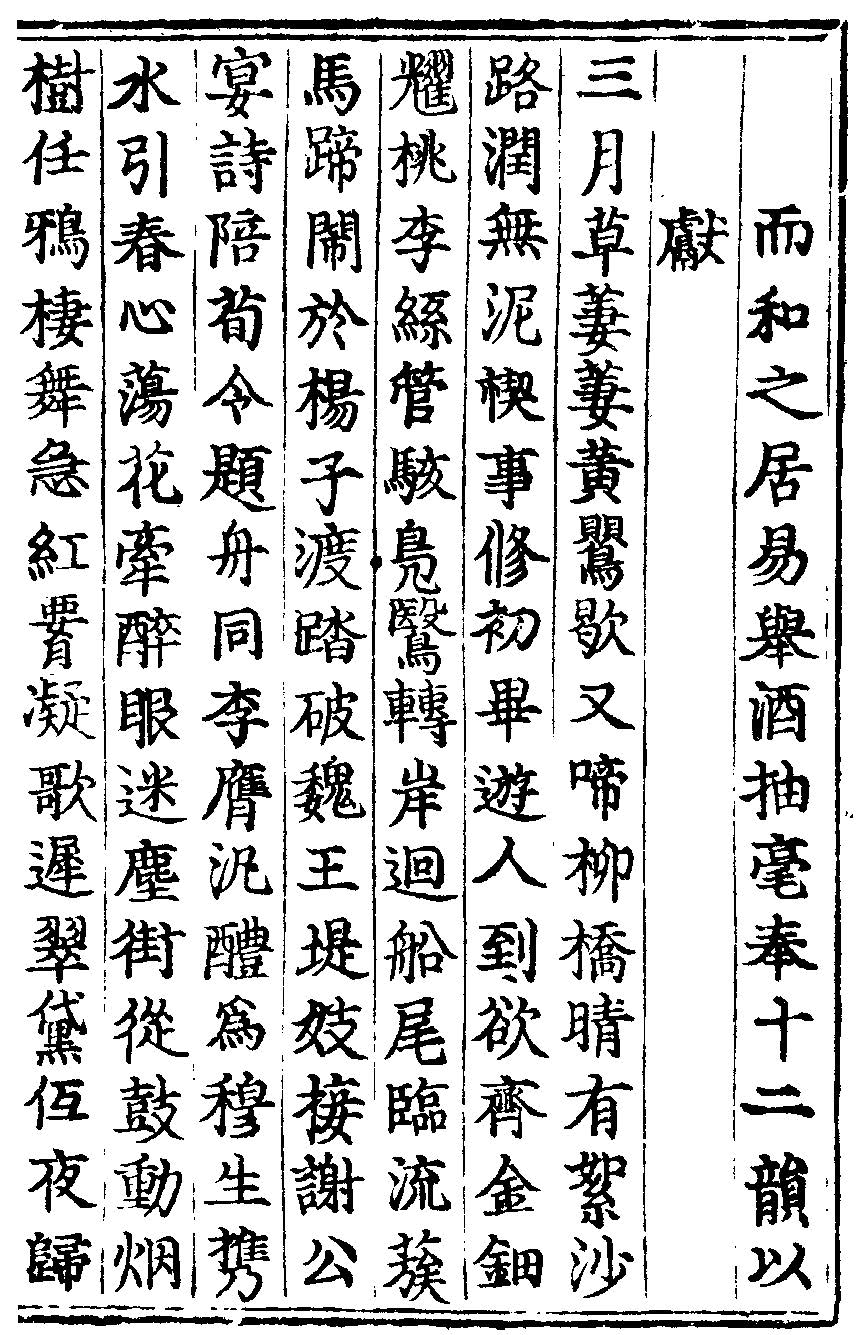 而和之居易舉酒抽毫奉十二韻以
獻
三月草萋萋黄鸎歇又啼柳橋晴有絮沙
路潤無泥禊事修初畢遊人到欲齊金鈿
耀桃李絲管駭鳧鷖轉岸迴船尾臨流蔟
馬蹄閙於楊子渡踏破魏王堤妓接謝公
宴詩陪荀令題舟同李膺汎醴爲穆生携
水引春心蕩花牽醉眼迷塵街從鼓動烟
樹任鴉棲舞急紅䙬凝歌遲翠黛低夜歸